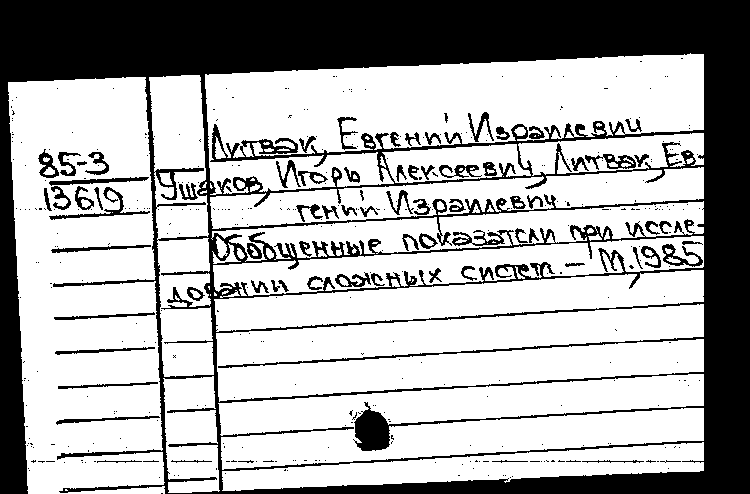 Литвак, Евгений Израилевич
85-3
13619
Ушаков, Игорь Алексеевич, Литвак, Ев-
гений Израилевич.
Обобщенные показатели при иссле-
довании сложных систем. – М., 1985